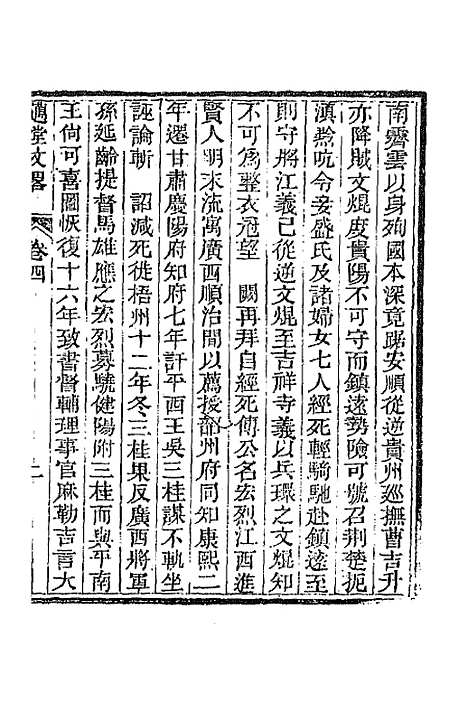 南霽雲以身殉國本深竟踞安順從逆貴州巡撫曹吉升
亦降賊文焜度貴陽不可守而鎮遠勢險可號召荆楚扼
滇黔吭令妾盛氏及諸婦女七人經死輕騎馳赴鎮遠至
則守將江義已從逆文焜至吉祥寺義以兵環之文焜知
不可爲整衣冠望　闕再拜自經死傅公名宏烈江西進
賢人明末流寓廣西順治間以薦授韶州府同知康熙二
年遷甘肅慶陽府知府七年訐平西王吳三桂謀不軌坐
誣論斬　詔減死徙梧州十二年冬三桂果反廣西將軍
孫延齡提督馬雄應之宏烈募驍健陽附三桂而與平南
王尙可喜圖恢復十六年致書督輔理事官麻勒吉言大
堂文畧
卷四